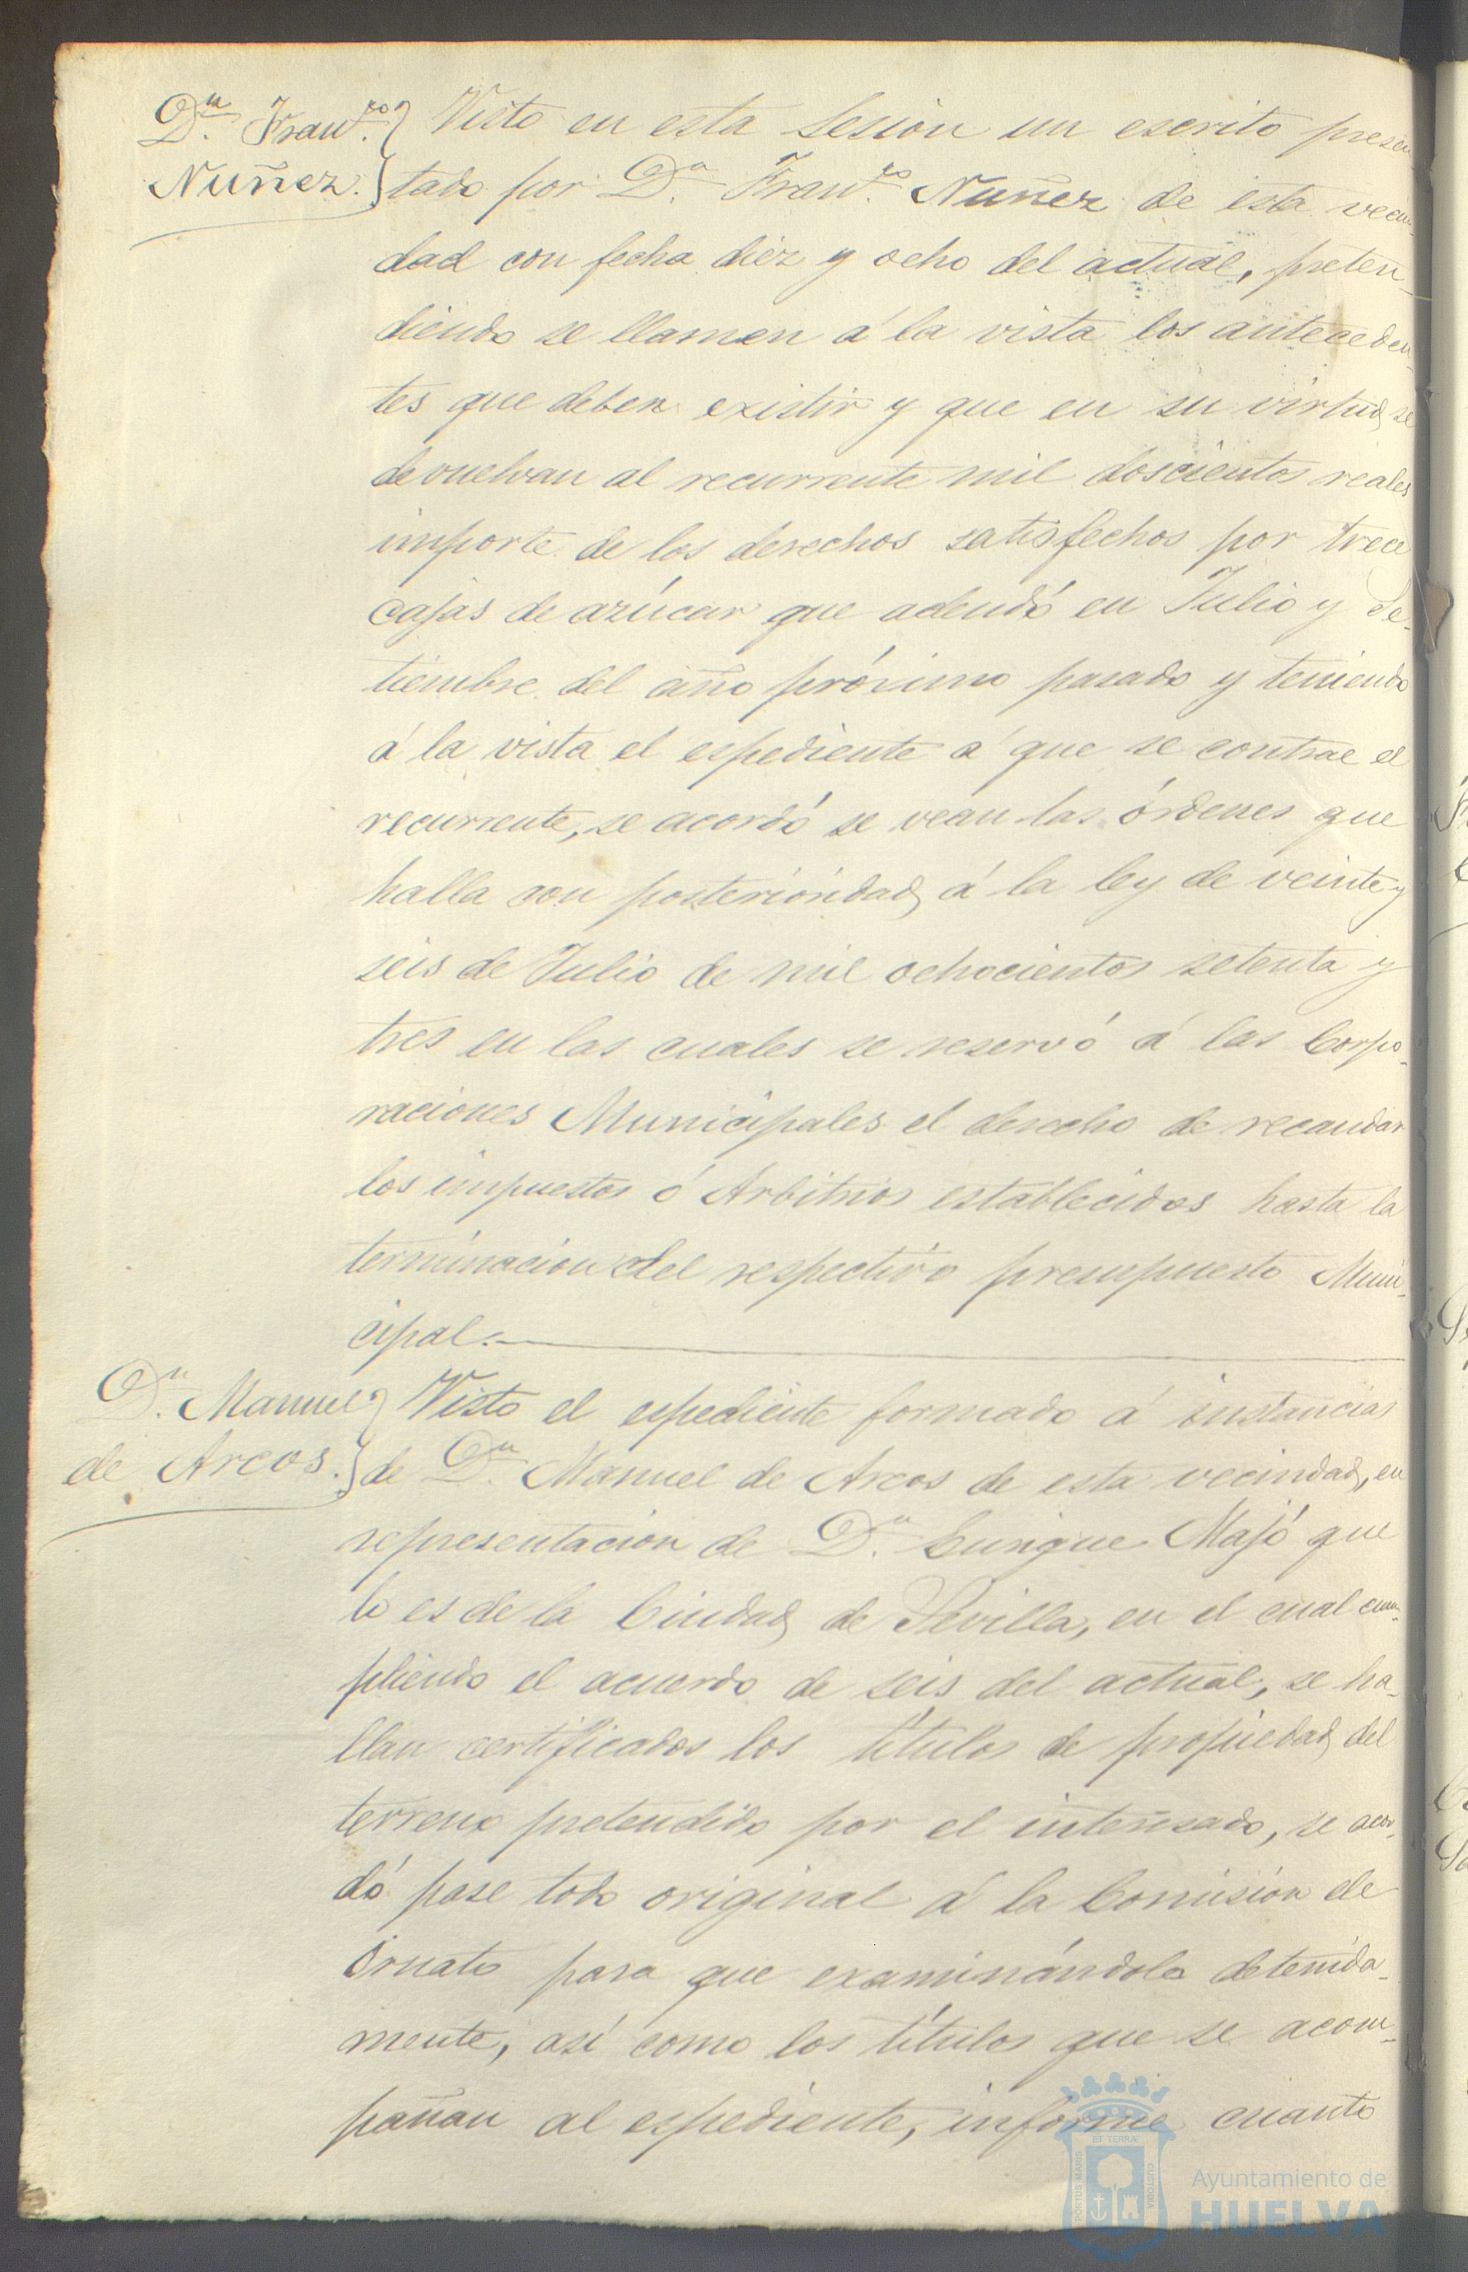 Dn. Franco.
Nuñez.
Visto en esta Sesion un escrito presen
tado por Dn. Franco. Nuñez de esta vecin-
dad con fecha diez y ocho del actual, preten-
diendo se llamen á la vista los anteceden-
tes que deben existir y que en su virtud se
devuelvan al recurrente mil doscientos reales
importe de los derechos satisfechos por trece
cajas de azúcar que adeudó en Julio y Se-
tiembre del año próximo pasado y teniendo
á la vista el espediente á que se contrae el
recurrente, se acordó se vean las órdenes que
halla con posterioridad á la ley de veinte y
seis de Julio de mil ochocientos setenta y
tres en las cuales se reservó á las Corpo-
raciones Municipales el derecho de recaudar
los impuestos ó Arbitrios establecidos hasta la
terminacion del respectivo presupuesto Muni-
cipal.
Dn. Manuel
de Arcos.
Visto el espediente formado á instancias
de Dn. Manuel de Arcos de esta vecindad, en
representacion de Dn. Enrique Majó que
lo es de la Ciudad de Sevilla, en el cual cum-
pliendo el acuerdo de seis del actual, se ha-
llan certificados los títulos de propiedad del
terreno pretendido por el interesado, se acor-
dó pase todo original á la Comision de
Ornato para que examinándolo detenida-
mente, así como los títulos que se acom-
pañan al espediente, informe cuanto
PORTUS MARIS
ET TERRÆ
CUSTODIA
Ayuntamiento de
HUELVA